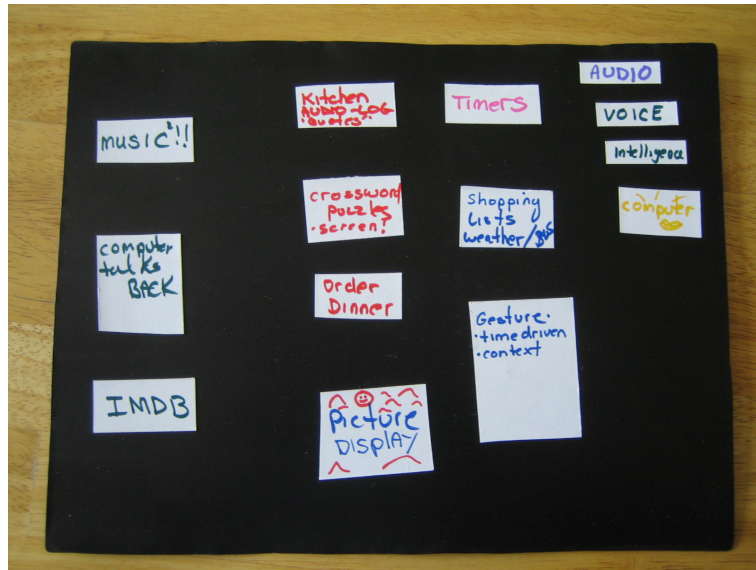 music!!
computer
talks
BACK
IMDB
Kitchen
AUDIO-LOG
"quotes"
crossword
puzzles
·screen?
Order
Dinner
Picture
DISPLAY
Timers
Shopping
Lists
weather/BUS
Gesture·
·time driven
·context
AUDIO
VOICE
Intelligence
computer